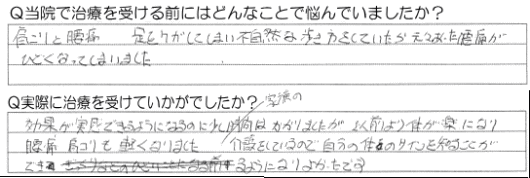 Q当院で治療を受ける前にはどんなことで悩んでいましたか?
肩こりと腰痛 足をケガしてしまい不自然な歩き方をしていたから腰痛が
ひどくなってしまいました
Q実際に治療を受けていかがでしたか?
効果が実感できるようになるのに少し時間はかかりましたが 以前より体が楽になり
腰痛 肩コリも軽くなりました 介護をしているので自分の体のサインを知ることが
できるようになりよかったです